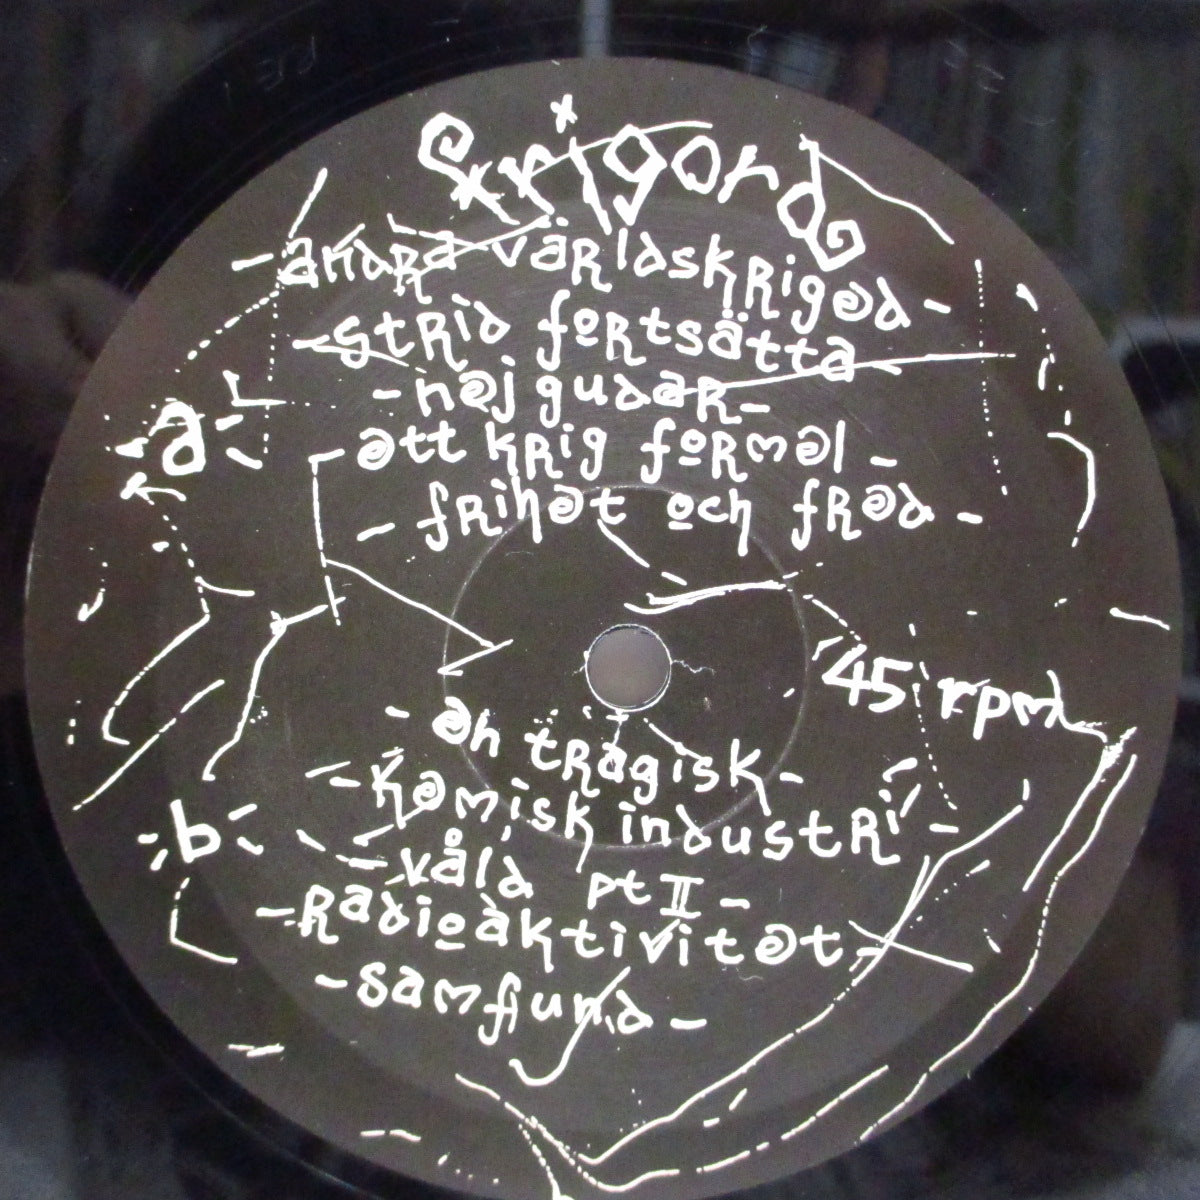 Frigora
-andra världskriged-
-strid fortsätta-
-hej gudar-
a
-ett krig formel-
-frihet och fred-
45 rpm
-en tragisk-
-kemisk industri-
b
-våld pt II-
-Radioaktivitet-
-samfund-